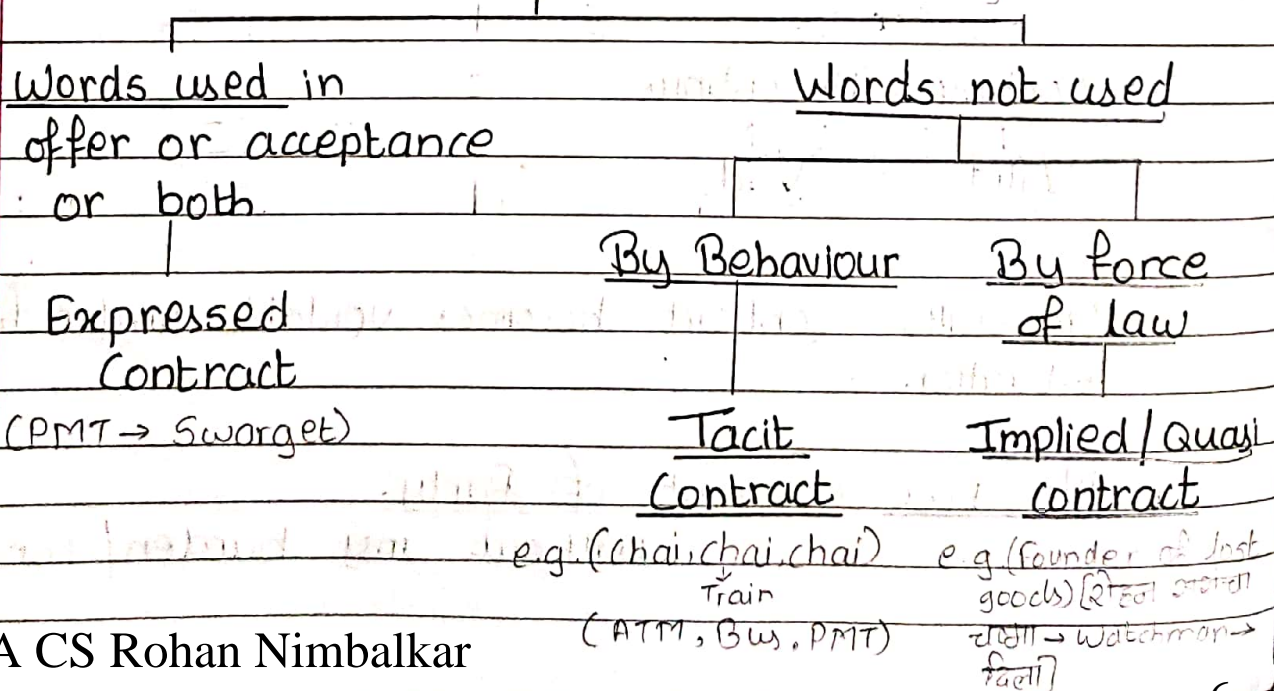 Words used in
offer or acceptance
or both
Expressed
Contract
(PMT → Swarget)
Words not used
By Behaviour
Tacit
Contract
e.g. (Chai, chai, chai)
Train
(ATM, Bus, PMT)
By force
of law
Implied/Quasi
contract
e.g (founder of lost
goods) [रोहन
चष्मा → Watchman →
दिला]
A CS Rohan Nimbalkar